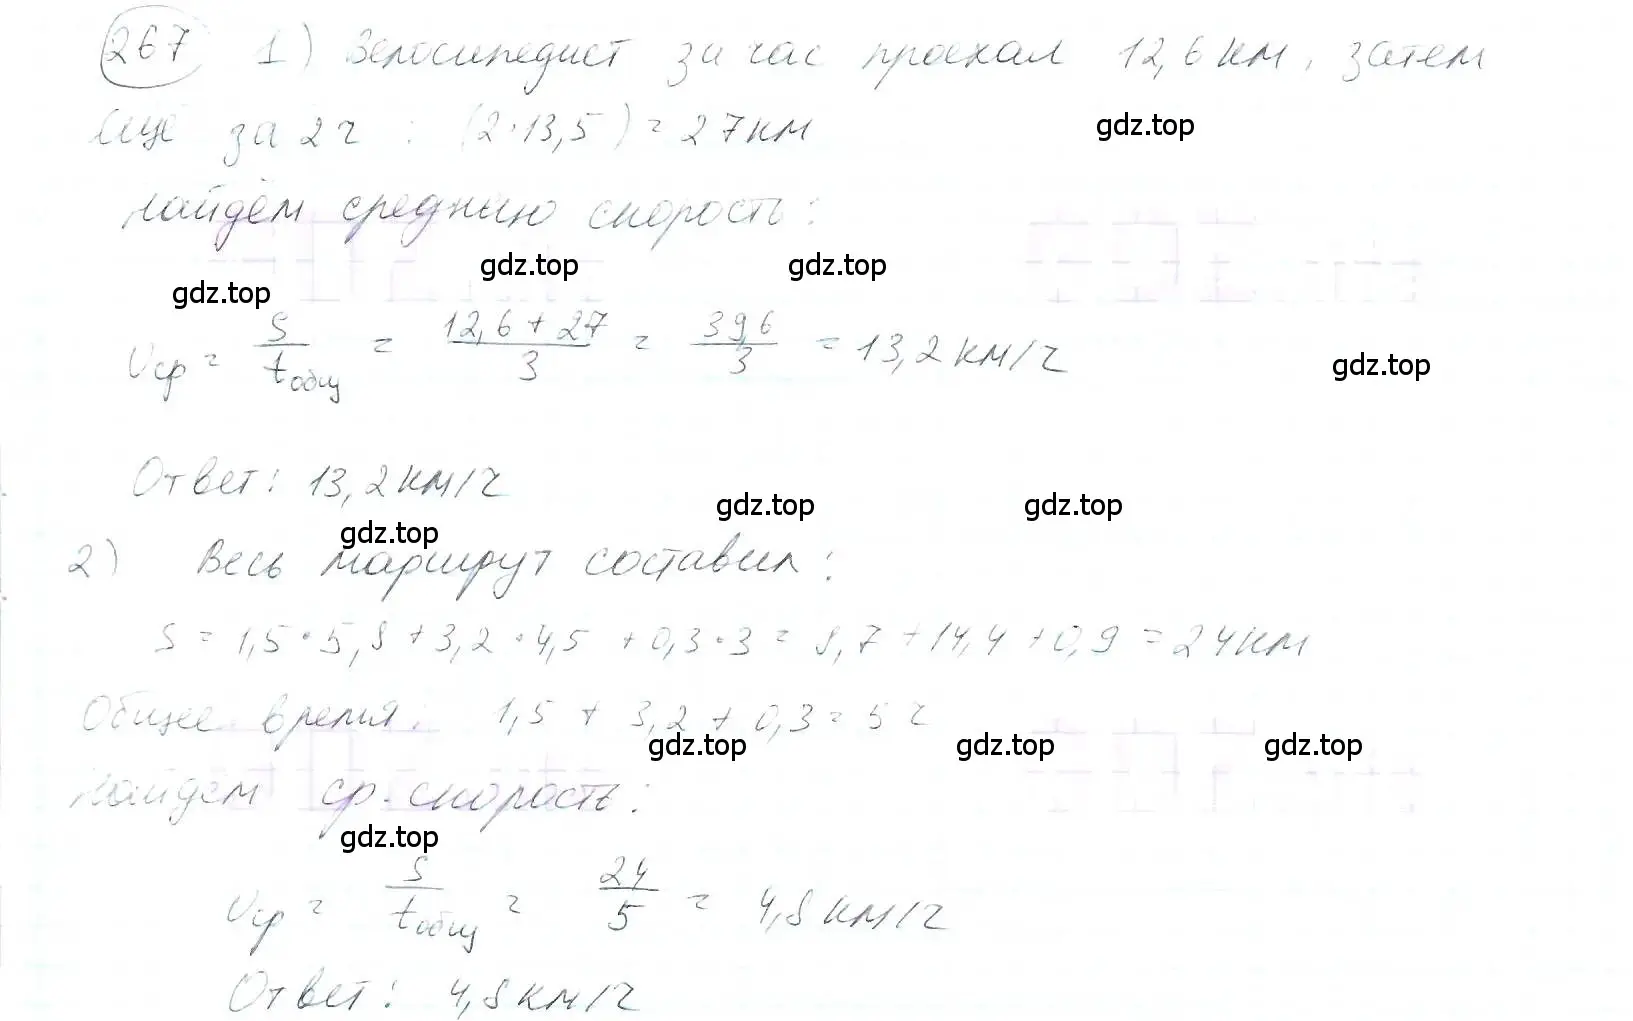 267 1) Велосипедист за час проехал 12,6 км, затем
ещё за 2 ч : (2·13,5) = 27 км
gdz.top
найдём среднюю скорость:
gdz.top gdz.top
gdz.top
υср = S/tобщ = (12,6 + 27)/3 = 39,6/3 = 13,2 км/ч
gdz.top
Ответ: 13,2 км/ч
gdz.top gdz.top
gdz.top
2) Весь маршрут составил:
S = 1,5·5,8 + 3,2·4,5 + 0,3·3 = 8,7 + 14,4 + 0,9 = 24 км
Общее время: 1,5 + 3,2 + 0,3 = 5 ч
gdz.top gdz.top gdz.top
Найдём ср. скорость:
gdz.top
υср = S/tобщ = 24/5 = 4,8 км/ч
Ответ: 4,8 км/ч